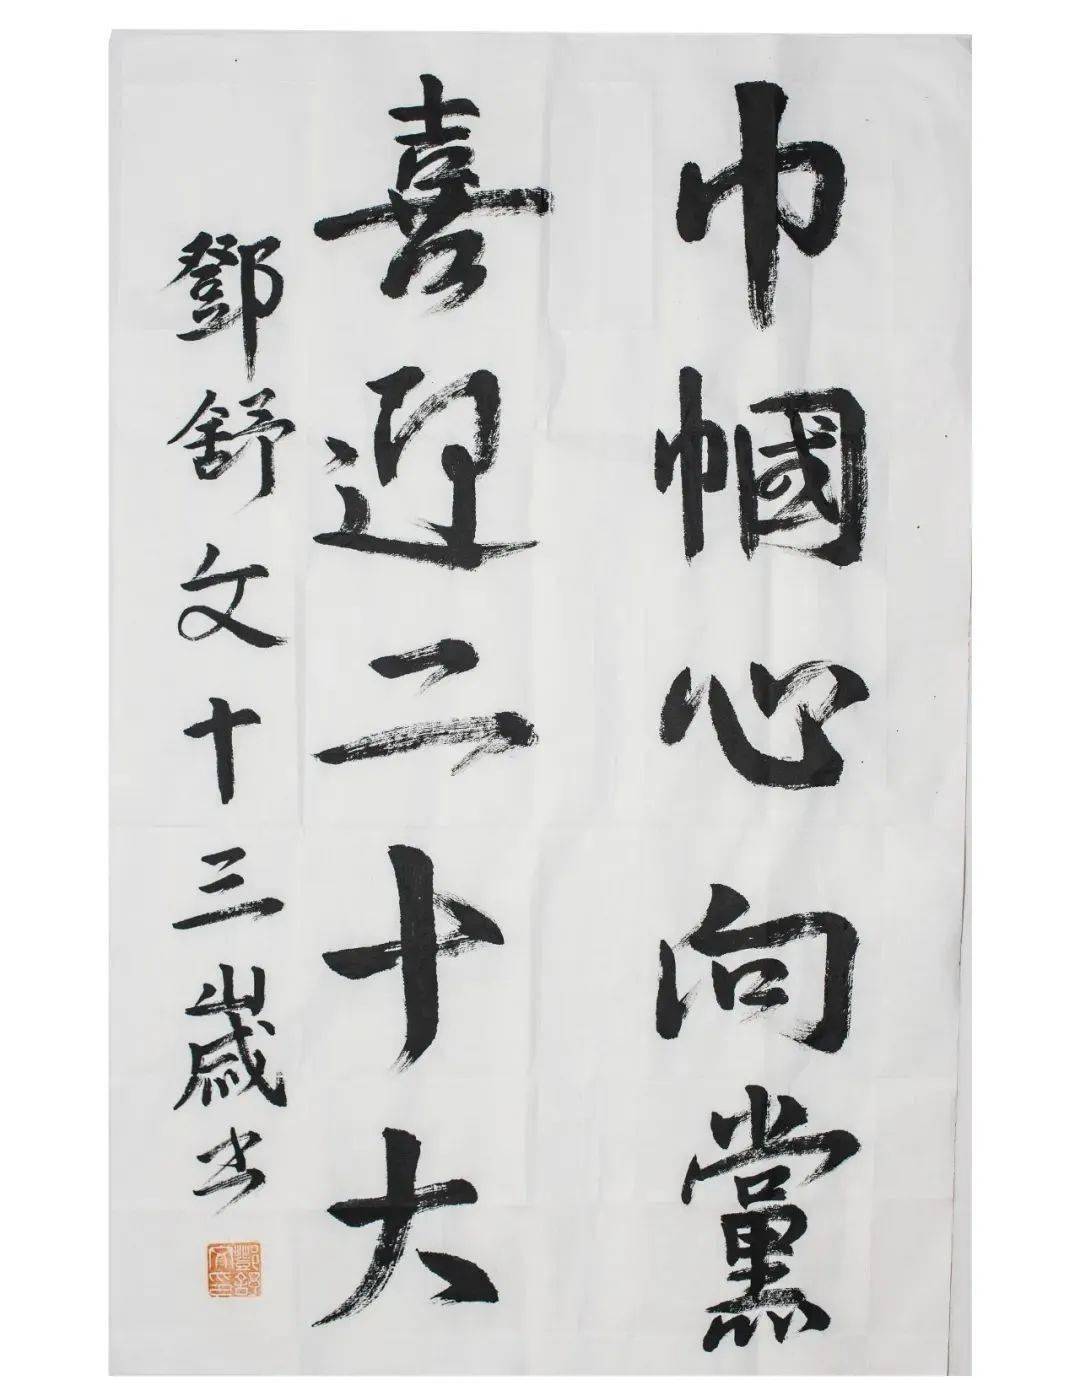 巾帼心向黨
喜迎二十大
鄧舒文十三歲书
鄧舒文印